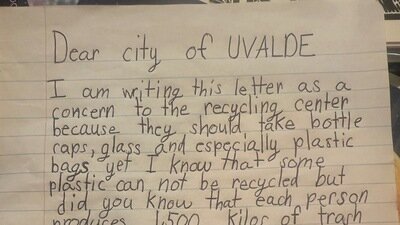 Dear city of UVALDE
I am writing this letter as a
concern to the recycling center
because they should take bottle
caps, glass and especially plastic
bags yet I know that some
plastic can not be recycled but
did you know that each person
produces 1,500 kilos of trash